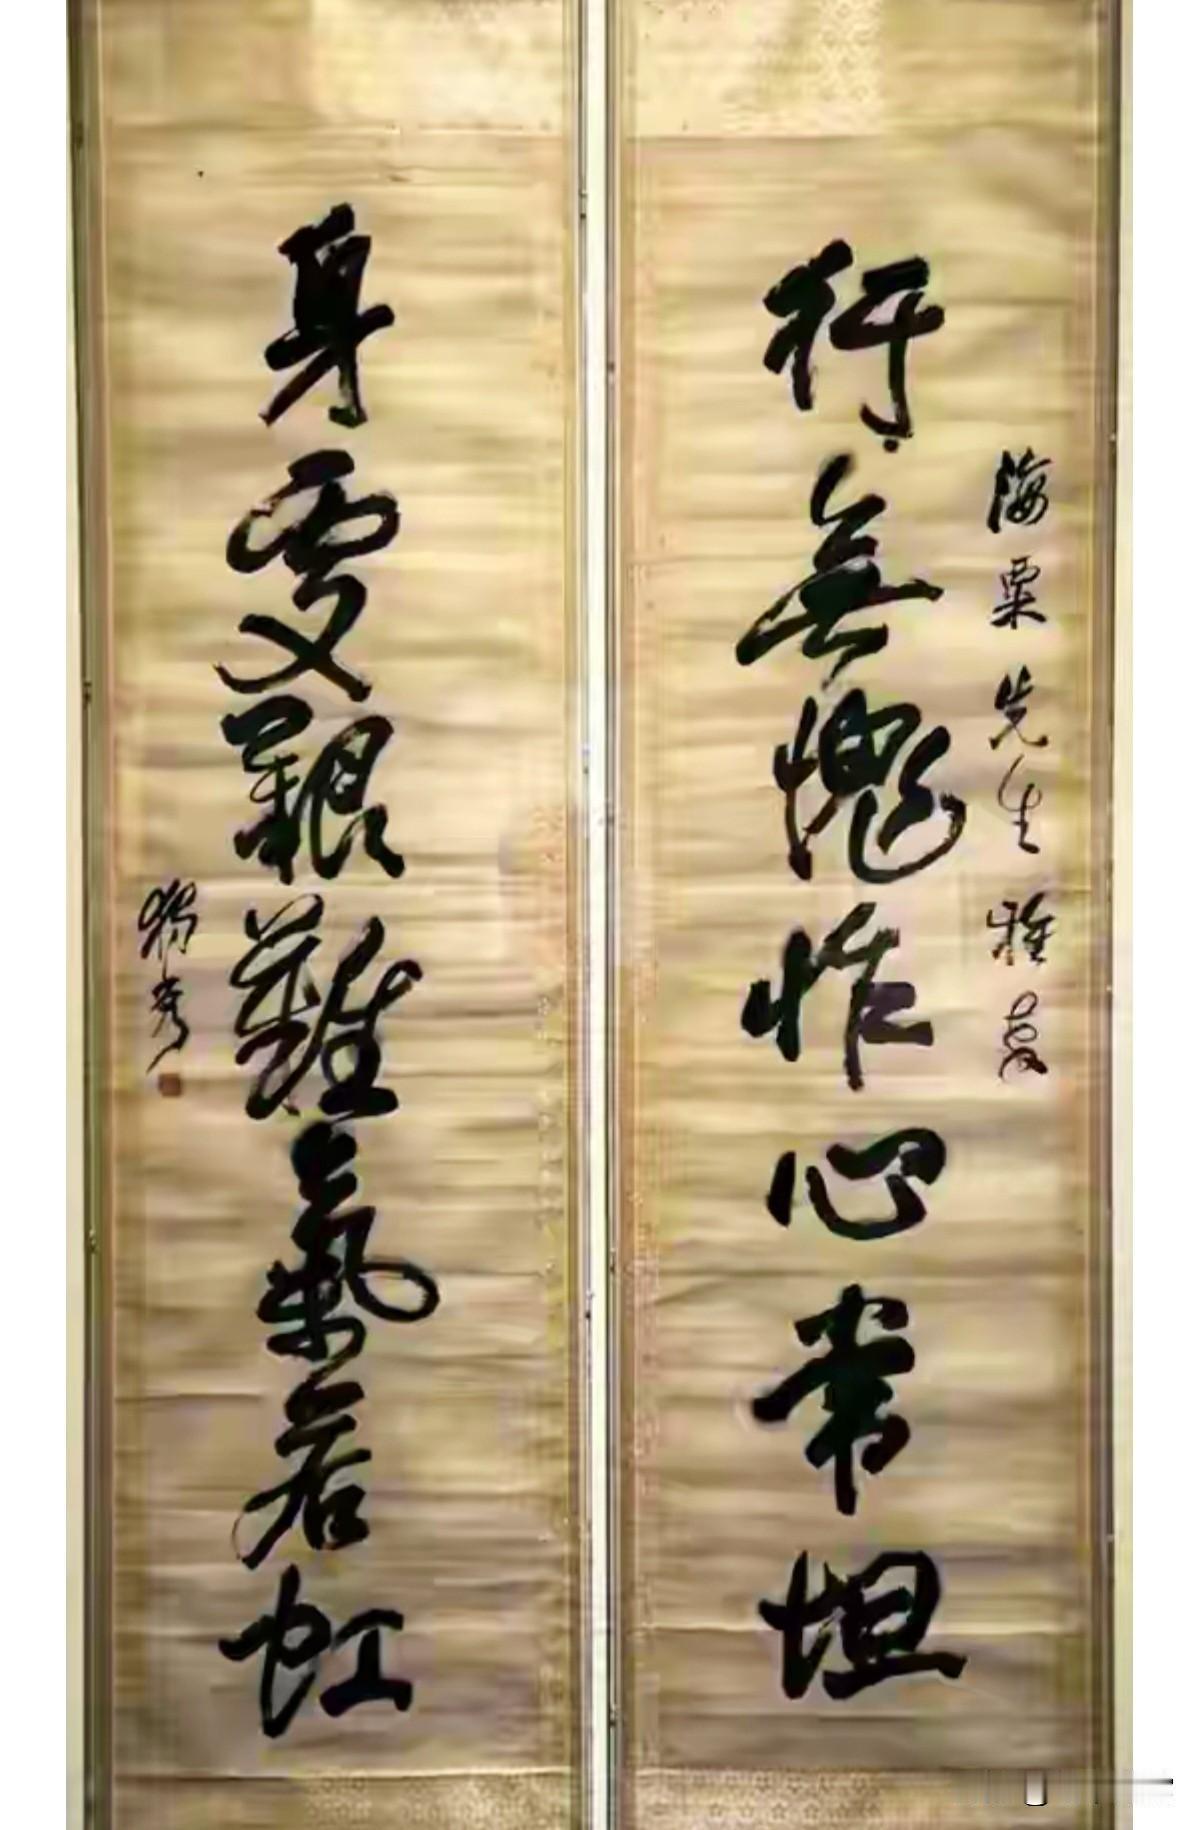 海粟先生雅教
行無愧怍心常坦
身處艱難氣若虹
獨秀